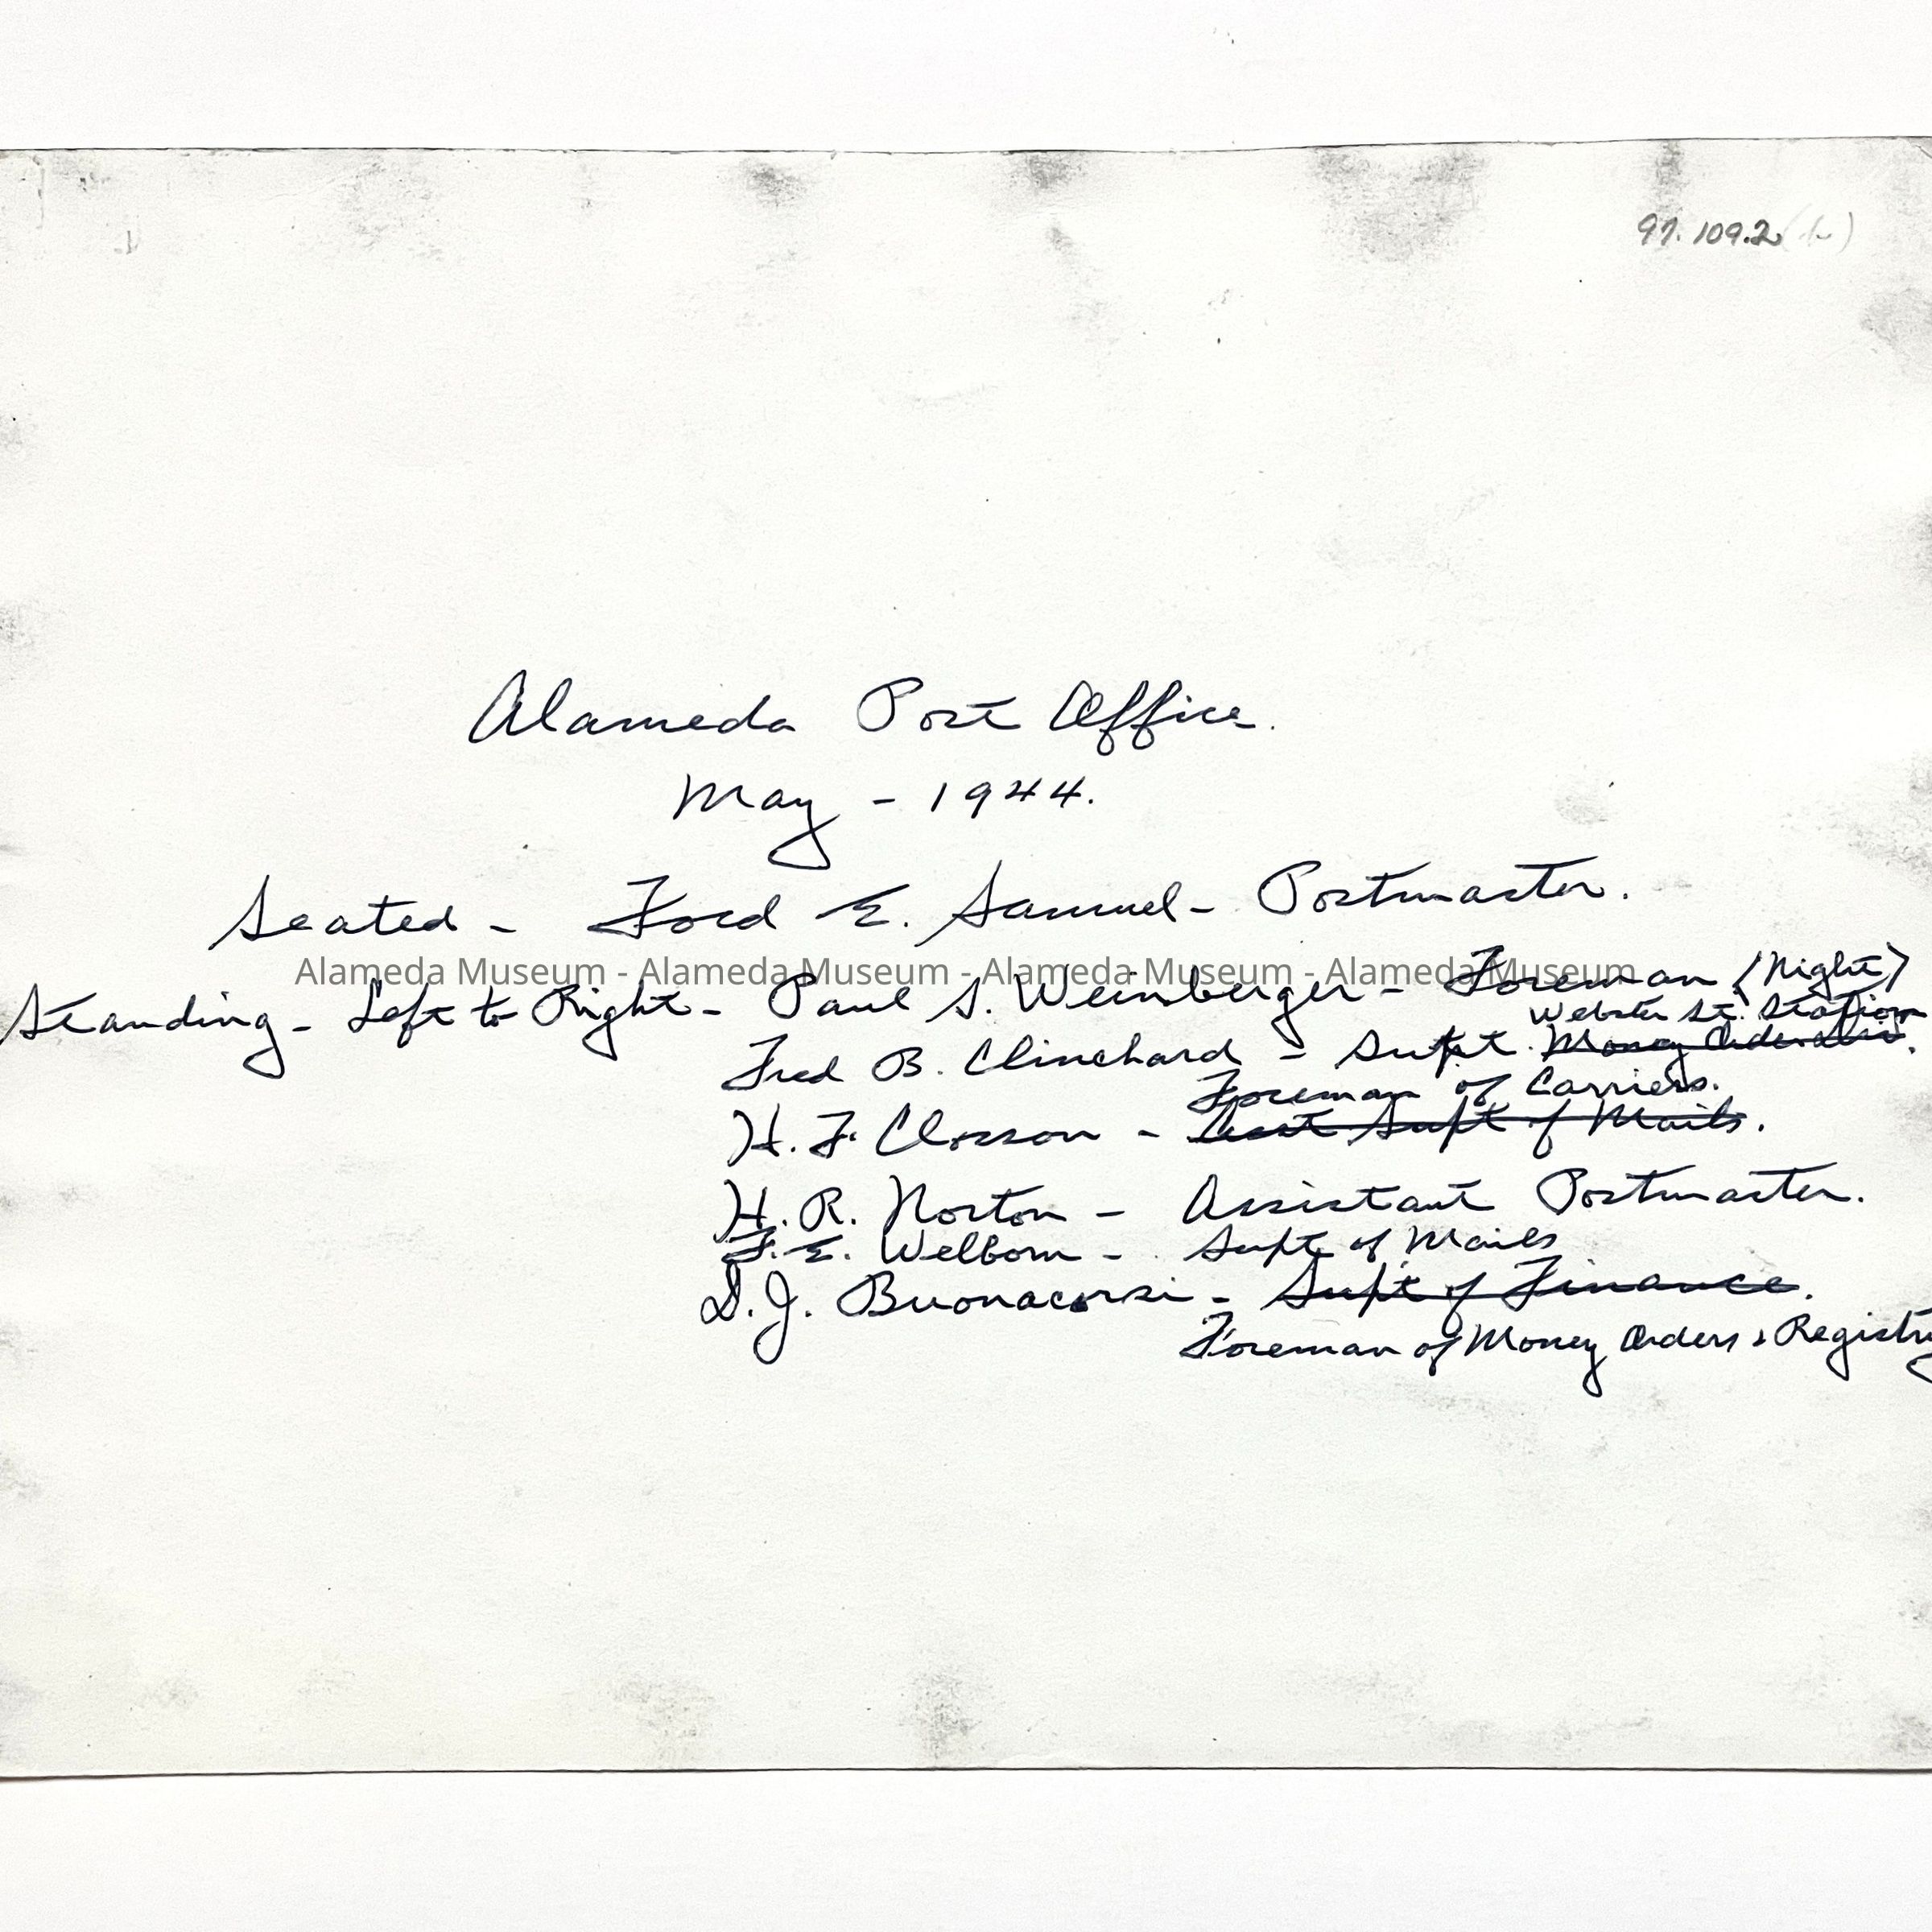 97.109.2
Alameda Post Office.
May - 1944.
Seated - Ford E. Samuel - Postmaster.
Alameda Museum - Alameda Museum - Alameda Museum - Alameda Museum
Standing - Left to Right - Paul S. Weinberger - Foreman (Night)
Webster St. Station
Fred B. Clinchard - Supt. Money Order
Foreman of Carriers.
H. F. Closson - Asst Supt of Mails.
H. R. Norton - Assistant Postmaster.
F. E. Welborn - Supt of Mails
D. J. Buonacorsi - Supt of Finance.
Foreman of Money Orders & Registry